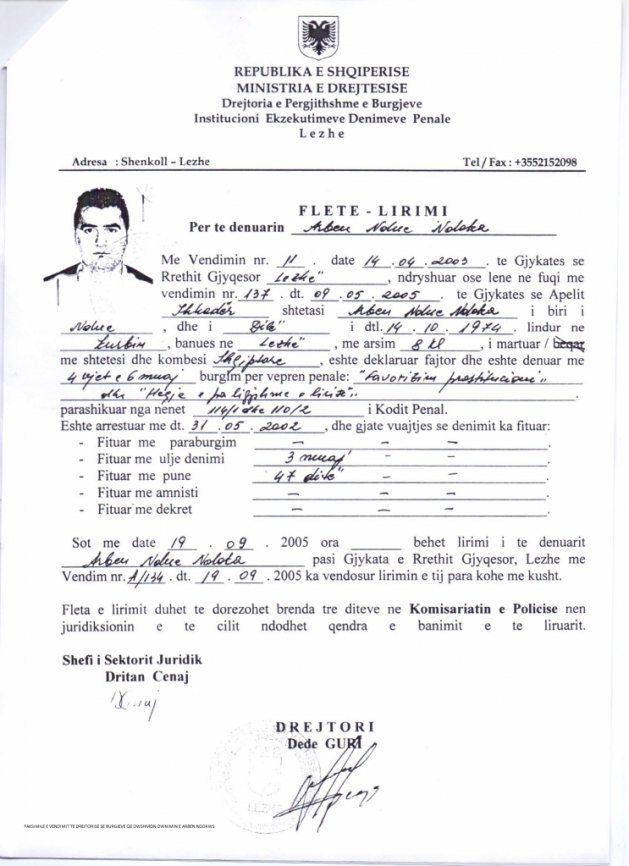 REPUBLIKA E SHQIPERISE
MINISTRIA E DREJTESISE
Drejtoria e Pergjithshme e Burgjeve
Institucioni Ekzekutimeve Denimeve Penale
Lezhe
Adresa : Shenkoll – Lezhe Tel / Fax : +3552152098
FLETE - LIRIMI
Per te denuarin Arben Ndue Ndoka
Me Vendimin nr. 11 . date 14 . 04 . 2003 . te Gjykates se
Rrethit Gjyqesor Lezhe" , ndryshuar ose lene ne fuqi me
vendimin nr. 137 . dt. 09 . 05 . 2005 . te Gjykates se Apelit
Shkodër shtetasi Arben Ndue Ndoka i biri i
Ndue , dhe i i dtl. 14 . 10 . 1974 . lindur ne
, banues ne Lezhë" , me arsim 8 kl , i martuar / beqar
me shtetesi dhe kombesi Shqiptare , eshte deklaruar fajtor dhe eshte denuar me
4 vjet e 6 muaj burgim per vepren penale: "Favorizim prostitucioni„
dhe e paligjshme e lirisë„ .
parashikuar nga nenet 114/1 dhe 110/2 i Kodit Penal.
Eshte arrestuar me dt. 31 . 05 . 2002 , dhe gjate vuajtjes se denimit ka fituar:
- Fituar me paraburgim – – – .
- Fituar me ulje denimi 3 muaj – – .
- Fituar me pune 47 ditë" – – .
- Fituar me amnisti – – – .
- Fituar me dekret – – – .
Sot me date 19 . 09 . 2005 ora behet lirimi i te denuarit
Arben Ndue Ndoka pasi Gjykata e Rrethit Gjyqesor, Lezhe me
Vendim nr. A/134 . dt. 19 . 09 . 2005 ka vendosur lirimin e tij para kohe me kusht.
Fleta e lirimit duhet te dorezohet brenda tre diteve ne Komisariatin e Policise nen
juridiksionin e te cilit ndodhet qendra e banimit e te liruarit.
Shefi i Sektorit Juridik
Dritan Cenaj
DREJTORI
Dede GURI
LEZHE
FAKSIMILE E VENDIMIT TE DREJTORISE SE BURGJEVE QE DWSHMON DWNIMIN E ARBEN NDOKWS